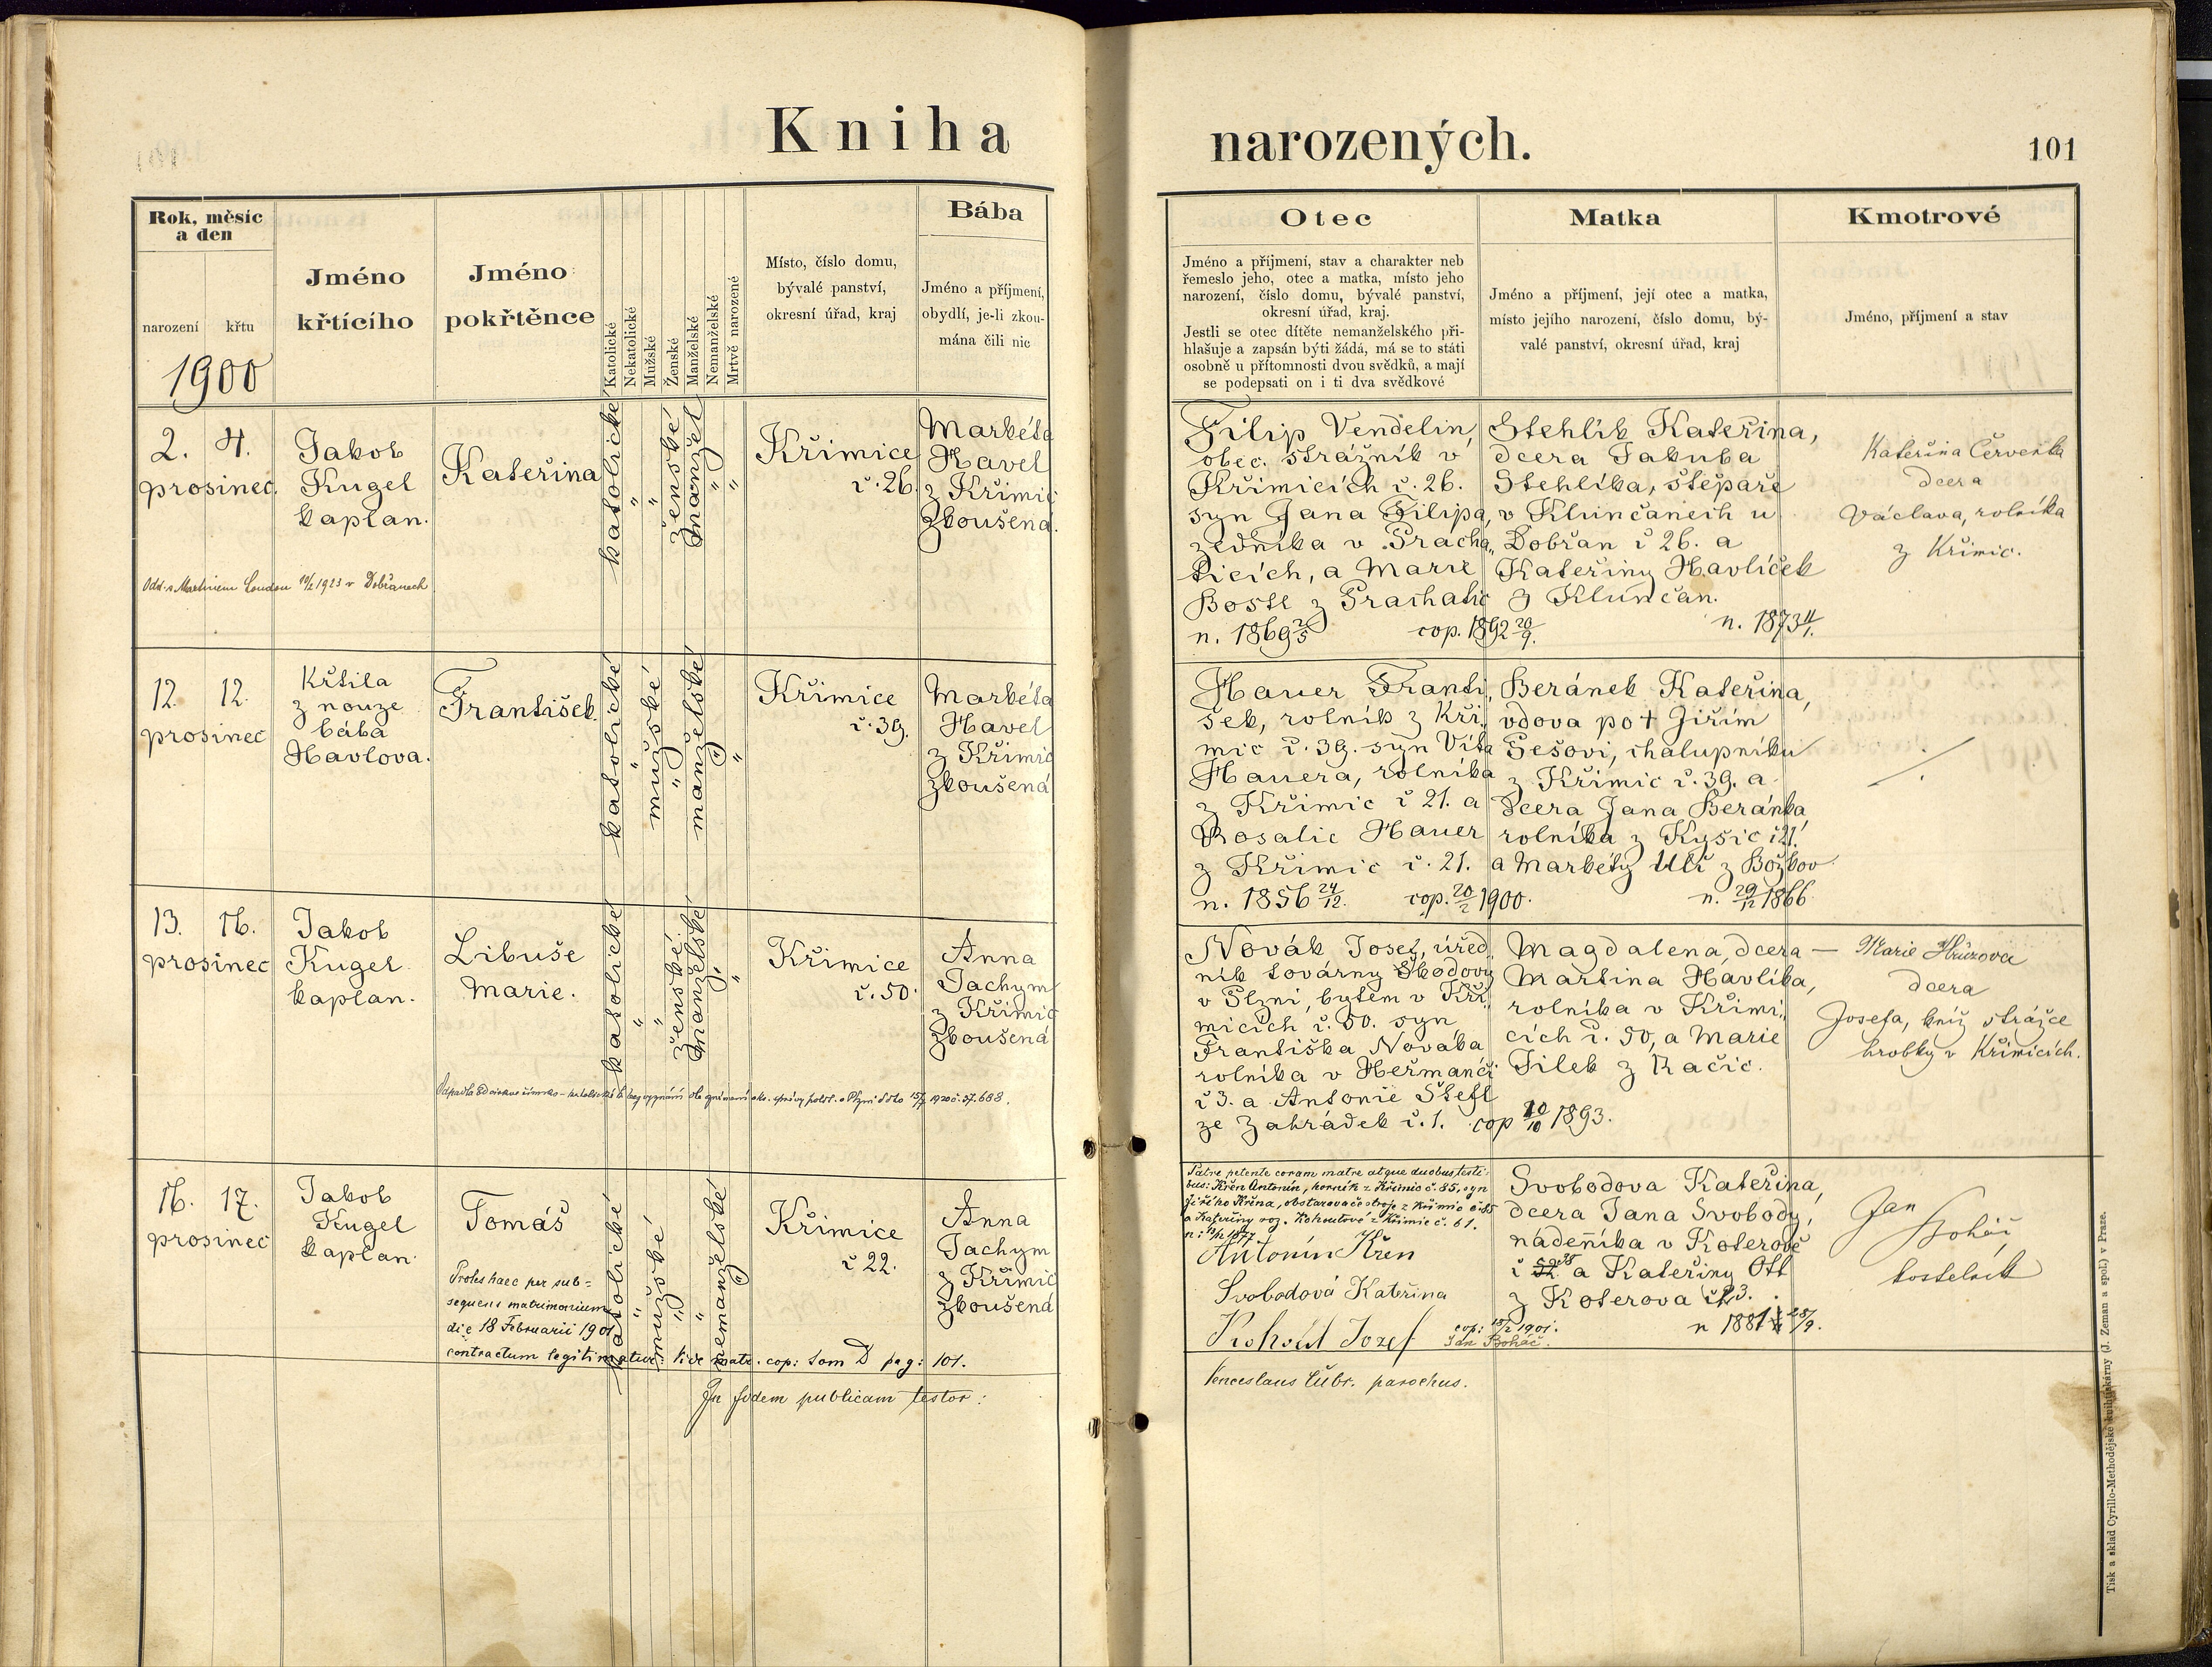 Kniha narozených.
101
Rok, měsíc
a den
narození
křtu
1900
Jméno
křtícího
Jméno
pokřtěnce
Katolické
Nekatolické
Mužské
Ženské
Manželské
Nemanželské
Mrtvě narozené
Místo, číslo domu,
bývalé panství,
okresní úřad, kraj
Bába
Jméno a příjmení,
obydlí, je-li zkou-
mána čili nic
Otec
Jméno a příjmení, stav a charakter neb
řemeslo jeho, otec a matka, místo jeho
narození, číslo domu, bývalé panství,
okresní úřad, kraj.
Jestli se otec dítěte nemanželského při-
hlašuje a zapsán býti žádá, má se to státi
osobně u přítomnosti dvou svědků, a mají
se podepsati on i ti dva svědkové
Matka
Jméno a příjmení, její otec a matka,
místo jejího narození, číslo domu, bý-
valé panství, okresní úřad, kraj
Kmotrové
Jméno, příjmení a stav
2. 4.
prosinec.
Jakob
Kugel
kaplan.
Kateřina
katolické
"
"
ženské
manžel
"
"
Křimice
č. 26.
Markéta
Havel
z Křimic
zkoušená.
Filip Vendelin,
obec. strážník v
Křimicích č. 26.
syn Jana Filipa,
zedníka v Pracha„
ticích, a Marie
Bostl z Prachatic
n. 1869 2/5
cop. 1892 20/9.
Stehlík Kateřina,
dcera Jakuba
Stehlíka, štěpaře
v Klunčanech u
Dobřan č 26. a
Kateřiny Havlíček
z Klunčan.
n. 1873 4/1.
Kateřina Červenka
dcera
Václava, rolníka
z Křimic.
Odd. s Martinem Loudou 10/2 1923 v Dobřanech
12. 12.
prosinec
Křtila
z nouze
bába
Havlova.
František.
katolické
"
mužské
"
manželské
"
"
Křimice
č. 39.
Markéta
Havel
z Křimic
zkoušená
Hauer Franti„
šek, rolník z Kři„
mic č. 39. syn Víta
Hauera, rolníka
z Křimic č 21. a
Rosalie Hauer
z Křimic č. 21.
n. 1856 24/12.
cop. 20/2 1900.
Beránek Kateřina,
vdova po † Jiřím
Pešovi, chalupníku
z Křimic č. 39. a
dcera Jana Beránka,
rolníka z Kyšic č 21.
a Markéty Ulč z Božkov
n. 29/12 1866.
13. 16.
prosinec
Jakob
Kugel
kaplan.
Libuše
Marie.
katolické
"
"
ženské
manželské
"
"
Křimice
č. 50.
Anna
Jachym
z Křimic
zkoušená
Novák Josef, úřed„
ník továrny Škodovy
v Plzni, bytem v Kři„
micích č. 50. syn
Františka Nováka
rolníka v Heřmanči
č 3. a Antonie Štefl
ze Zahrádek č. 1.
cop 10/10 1893.
Magdalena, dcera
Martina Havlíka,
rolníka v Křimi„
cích č. 50, a Marie
Filek z Račic.
Marie Hůrzova
dcera
Josefa, kníž strážce
hrobky v Křimicích.
16. 17.
prosinec
Jakob
Kugel
kaplan.
Tomáš
katolické
"
mužské
"
"
nemanželské
"
Křimice
č 22.
Anna
Jachym
z Křimic
zkoušená
Proles haec per sub=
sequens matrimonium
die 18 Februarii 1901
contractum legitimatur. Vide matr. cop: tom D pag: 101.
In fidem publicam testor:
Patre petente coram matre atque duobus testi-
bus: Křen Antonín, horník z Křimic č. 85, syn
Jiřího Křena, obstarovače stroje z Křimic č. 85
a Kateřiny roz. Kohoutové z Křimic č. 61.
Antonín Křen
Svobodová Kateřina
Kohout Jozef
cop: 18/2 1901.
Jan Boháč.
Venceslaus Lübr. parochus.
Svobodova Kateřina,
dcera Jana Svobody,
nádeníka v Koterově
a Kateřiny Ott
z Koterova č 23.
n 1881 28/9.
Jan
Boháč
kostelník
Tisk a sklad Cyrillo-Methodějské knihtiskárny (J. Zeman a spol.) v Praze.